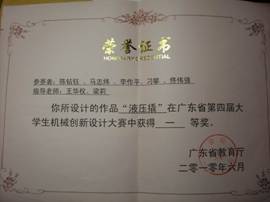 荣誉证书
HONORARY CREDENTIAL
参赛者：陈钻钰、马志炜、李作平、刁攀、佟伟强
指导老师：王华权、梁莉
你所设计的作品“液压撬”在广东省第四届大
学生机械创新设计大赛中获得 一 等奖。
广东省教育厅
二零一零年六月